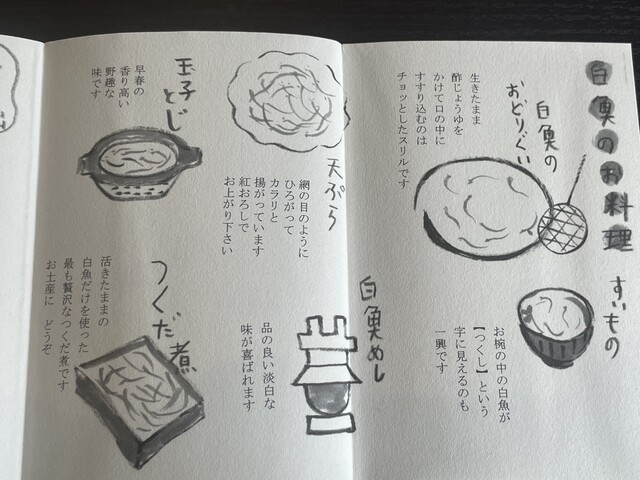 白魚のお料理
白魚の
おどりぐい
生きたまま
酢じょうゆを
かけて口の中に
すすり込むのは
チョッとしたスリルです
すいもの
お椀の中の白魚が
【つくし】という
字に見えるのも
一興です
天ぷら
網の目のように
ひろがって
カラリと
揚がっています
紅おろしで
お上がり下さい
白魚めし
品の良い淡白な
味が喜ばれます
玉子とじ
早春の
香り高い
野趣な
味です
つくだ煮
活きたままの
白魚だけを使った
最も贅沢なつくだ煮です
お土産に どうぞ